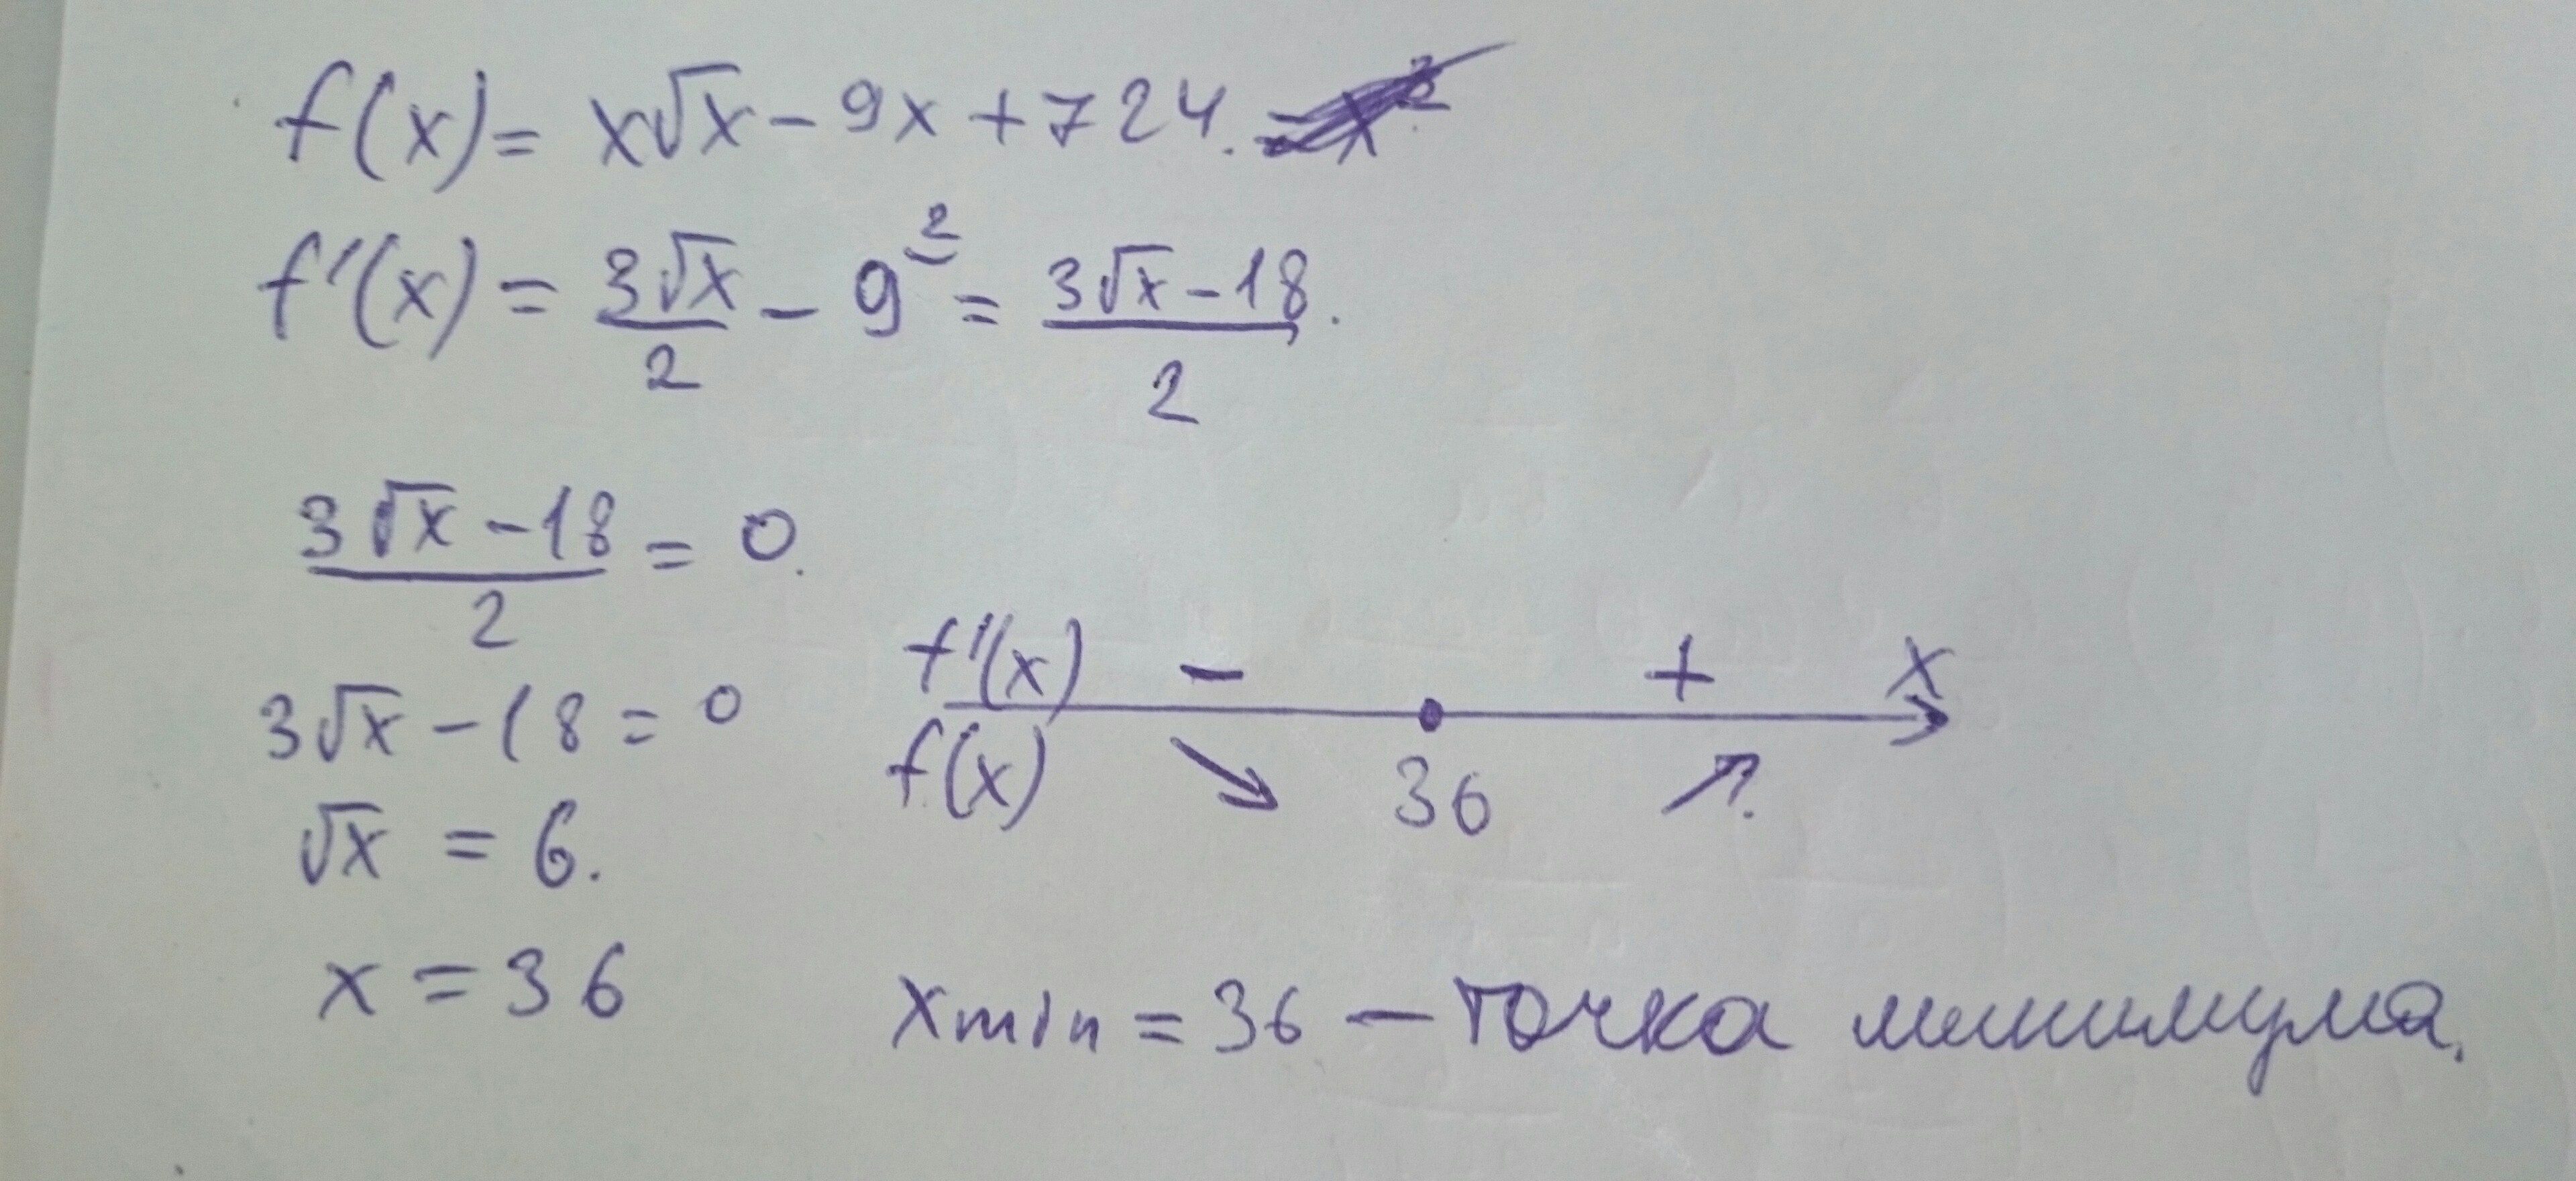 f(x) = x√x - 9x + 724.
f'(x) = 3√x/2 - 9^2 = (3√x - 18)/2.
(3√x - 18)/2 = 0.
3√x - 18 = 0
√x = 6.
x = 36
f'(x) - + x
f(x) ↘ 36 ↗.
xmin = 36 — точка минимума.